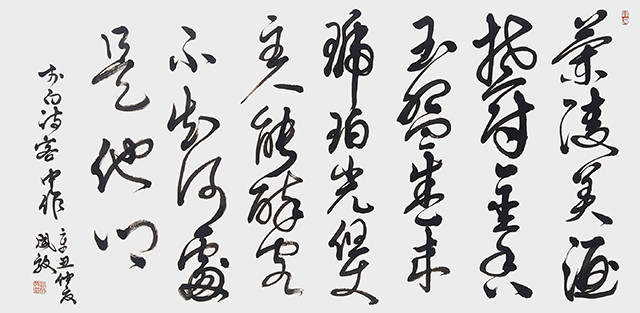 蘭陵美酒
鬱金香
玉盌盛来
琥珀光但使
主人能醉客
不知何處
是他鄉
李白詩客中作
辛丑仲夏